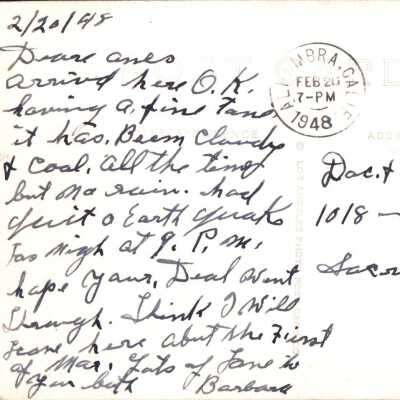 2/20/48
Deare ones
arrived here O.K.
having a fine time
it has. Beem Cloudy
& Coal. all the time
but no rain. had
quit a Earth quake
Tas nigh at 9. P. M.
hope your, Deal went
through. think I Will
Leave here about the First
of Mar. Lots of Love to
You both Barbara
ALHAMBRA, CALIF.
FEB 20
7-PM
1948
ADD
© LOS ANGELES PHOTO
Doc. &
1018 -
Sacr